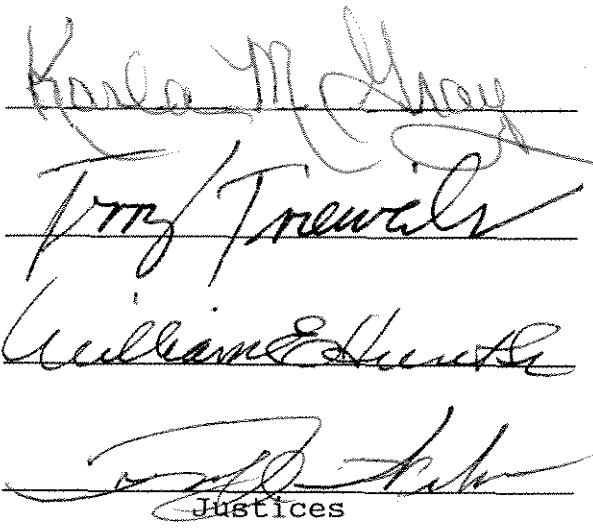 Karla M Gray
Terry Trieweiler
William E Hunt Sr
Justices